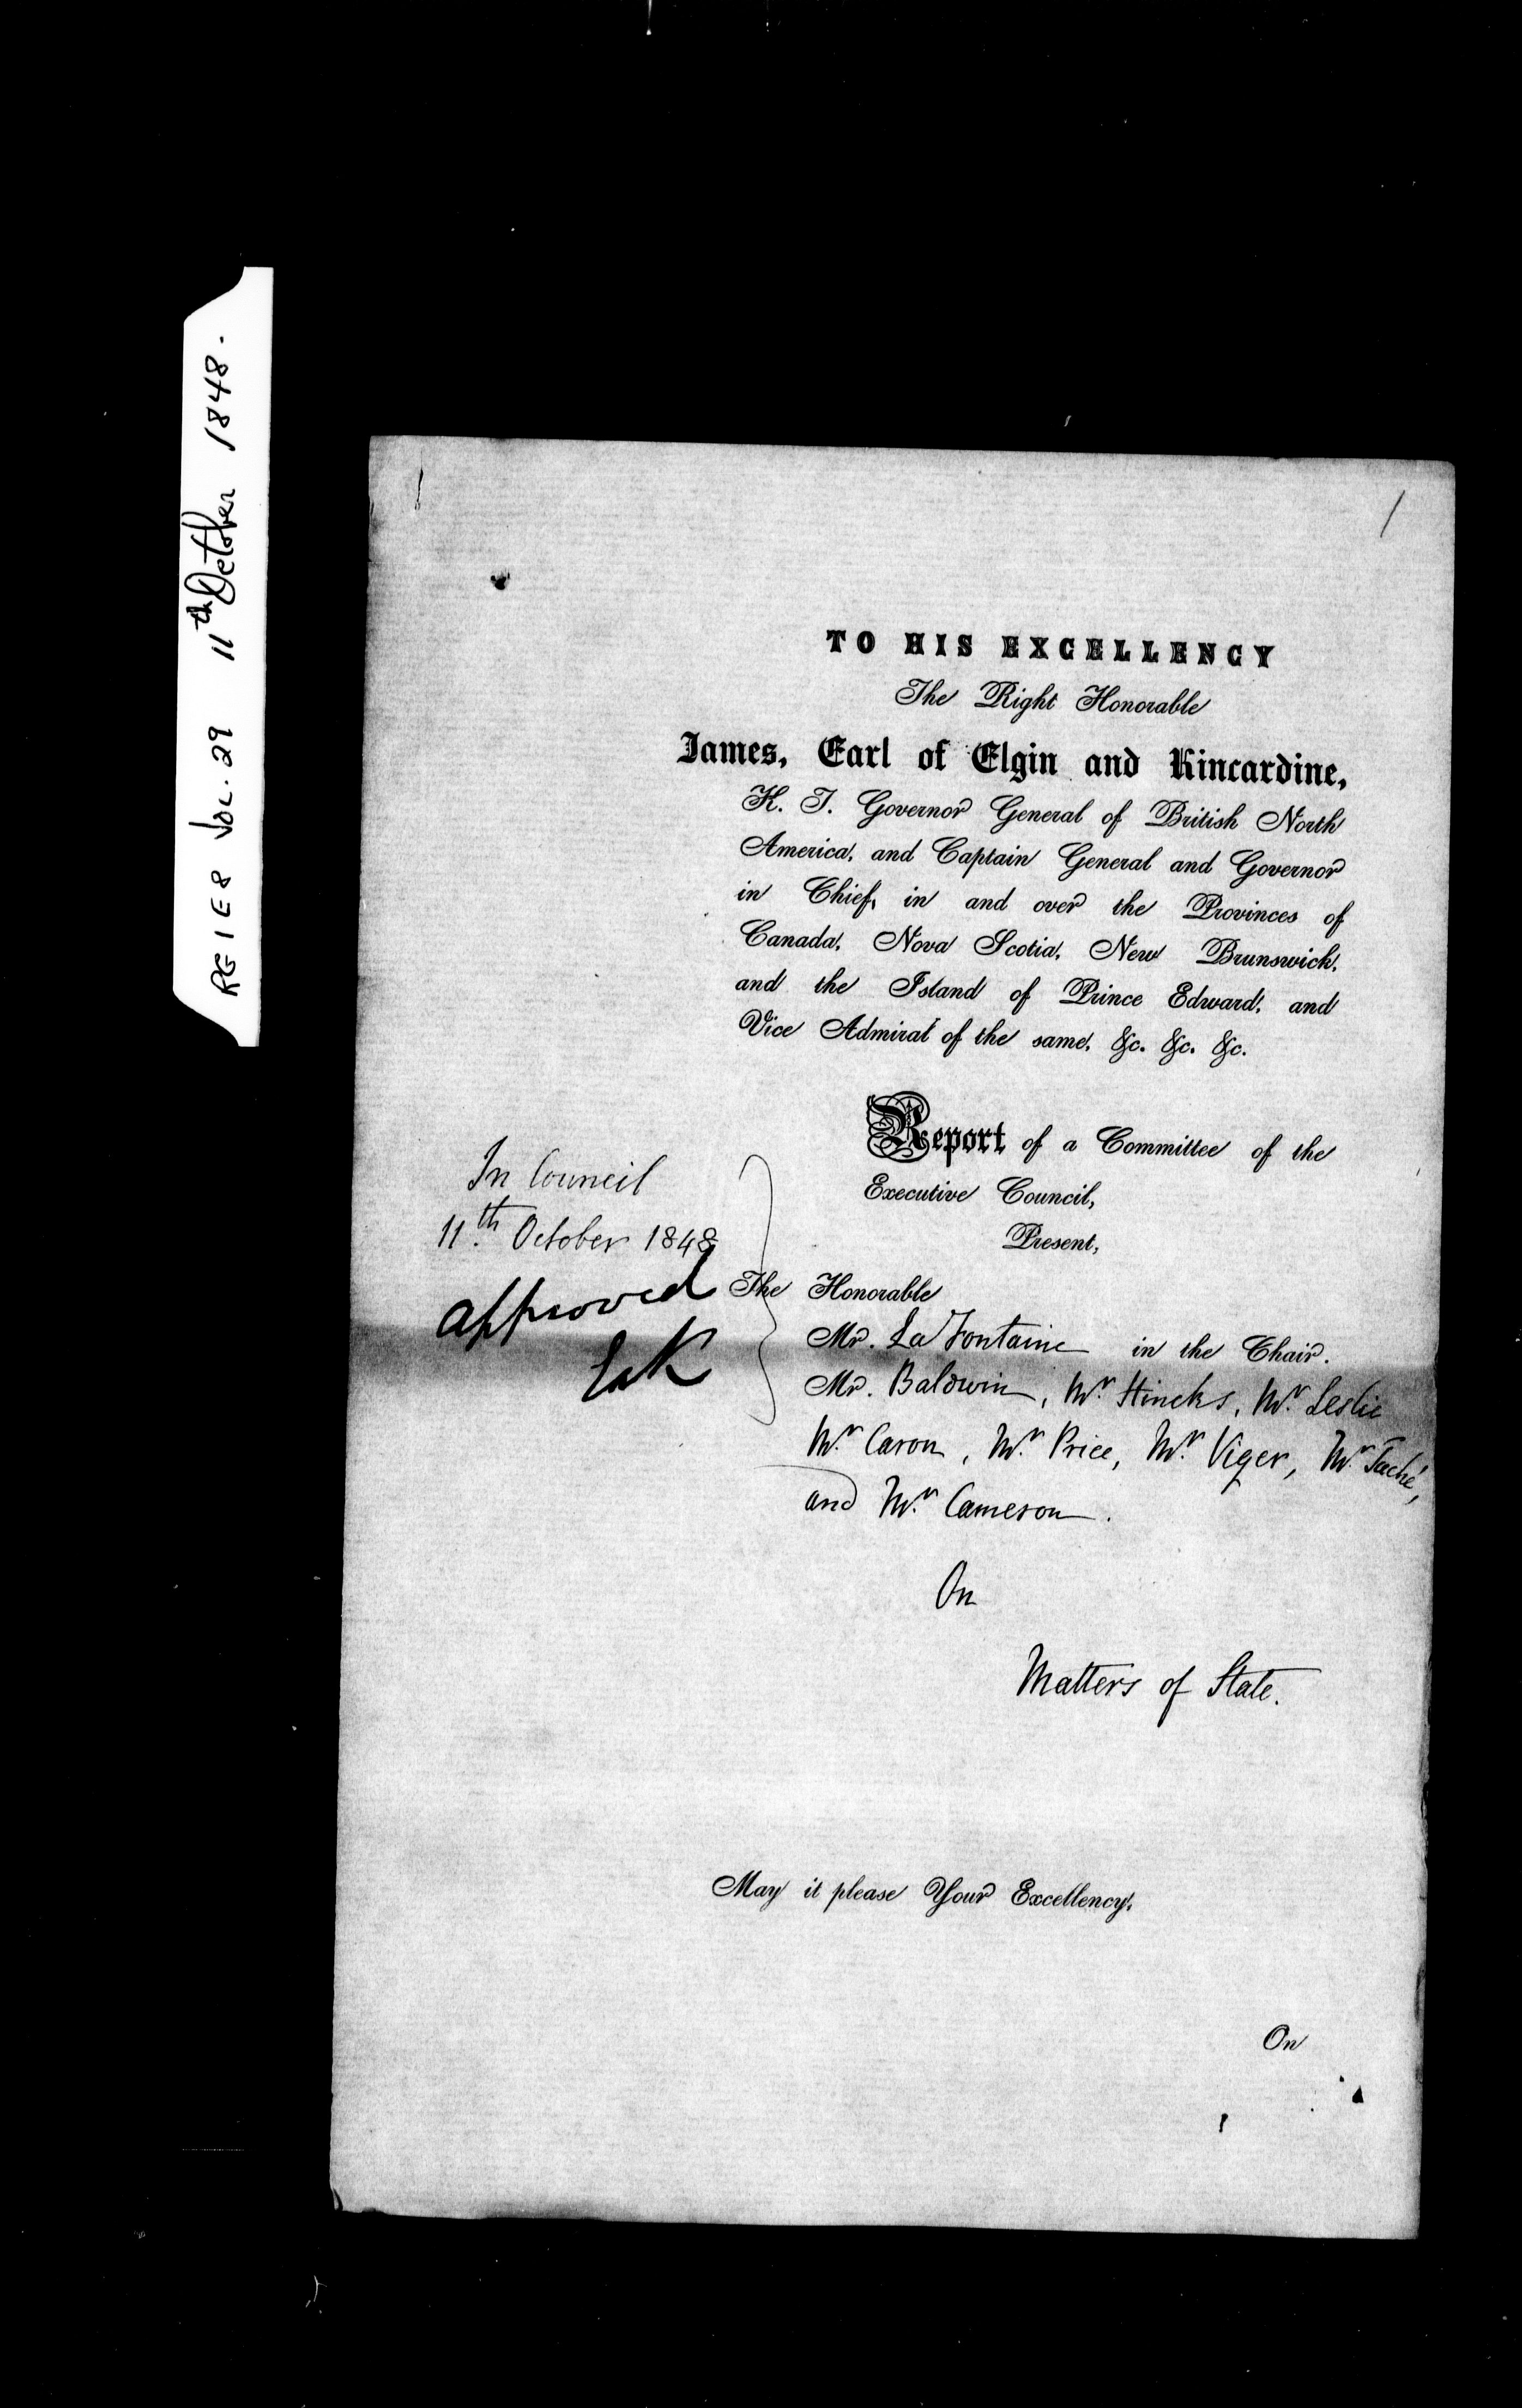 RG 1 E8 VOL. 29 11th October 1848.
1
TO HIS EXCELLENCY
The Right Honorable
James, Earl of Elgin and Kincardine,
K. T. Governor General of British North
America, and Captain General and Governor
in Chief, in and over the Provinces of
Canada, Nova Scotia, New Brunswick,
and the Island of Prince Edward, and
Vice Admiral of the same, &c. &c. &c.
Report of a Committee of the
Executive Council,
Present,
In Council
11th October 1848
approved
E&K
The Honorable
Mr. La Fontaine in the Chair.
Mr. Baldwin, Mr. Hincks, Mr. Leslie
Mr. Caron, Mr. Price, Mr. Viger, Mr. Taché,
and Mr. Cameron.
On
Matters of State.
May it please Your Excellency,
On